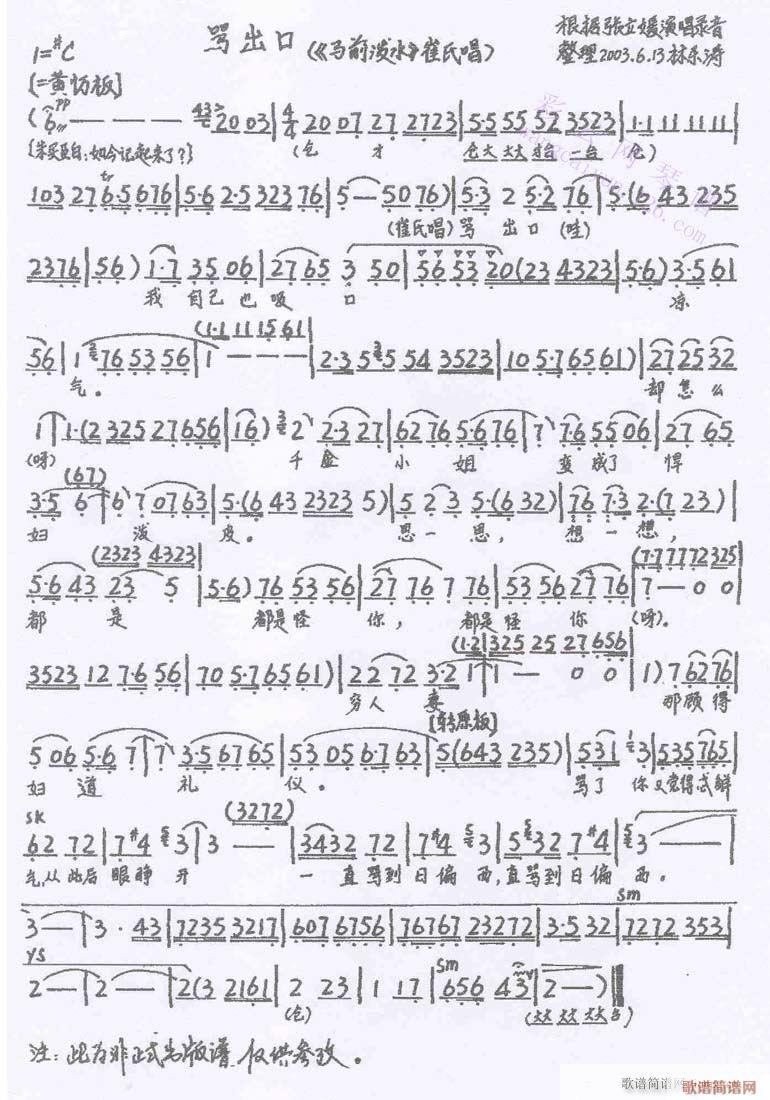 骂出口（《马前泼水》崔氏唱）
根据张立媛演唱录音
整理2003.6.13林乐涛
1=#C
[二黄慢板]
43 20 03 | 4/4 20 07 27 2723 | 5·5 55 52 3523 | 1·1 11 11 11 |
(朱买臣白:如今记起来了?) (仓 才 仓大 大大 抬 一台 仓)
103 27 6·5 676 | 5·6 2·5 323 76 | 5 — 5076) | 5·3 2 5·2 76 | 5·(6 43 235
(崔氏唱)骂 出口(哇)
2376 | 56) 1·7 35 06 | 2765 3 50 | 56 53 20(23 4323 | 5·6) 3·5 61
我 自己也吸 口 凉
(1·1 11 15 61)
56 | 1 76 53 56 | 1 — — — | 2·3 5 5 54 3523 | 10 5·7 6561) | 27 25 32
气。 却怎么
1 | 1·(2 325 27 656 | 16) 2 2·3 27 | 62 76 5·6 76 | 7 7·6 55 06 | 27 65
(呀) 千金 小 姐 变成了 悍
(67)
3·5 6 | 6 7 07 63 | 5·(6 43 2323 5) | 5 2 3 5·(6 32) | 76 7·3 2·(7 23) |
妇 泼 皮。 思一思, 想一想,
(2323 4323) (7·7 77 72 325
5·6 43 23 5 | 5·6) 76 53 56 | 27 76 7 76 | 53 56 27 76 | 7 — 0 0 |
都 是 都是怪 你, 都是怪 你 (呀)。
(1·2 | 325 25 27 656
3523 12 7·6 56 | 70 5·7 65 61) | 22 72 3·2 1 | 1 — 0 0 | 1) 7 62 76
穷人 妻 那顾得
[转原板]
5 06 5·6 7 | 7 3·5 6765 | 53 05 6·7 63 | 5(643 235) | 531 3 | 535 765
妇 道 礼 仪。 骂了 你又觉得
sk (3272)
62 72 | 7#4 3 | 3 — | 3432 72 | 7#4 3 | 5 32 72 | 7#4 | 3 —
气,从此后 眼睁 开 一直骂到 日偏 西,直骂到 日偏 西。
sm
3 — | 3· 43 | 7235 3217 | 607 6756 | 76767 23272 | 3·5 32 | 7272 353 |
ys sm
2 — | 2 — | 2(3 2161 | 2 23 | 1 17 | 656 43 | 2 —)
(仓) (大大 大大 大 )
注：此为非正式出版谱，仅供参考。
歌谱简谱网
歌谱简谱网